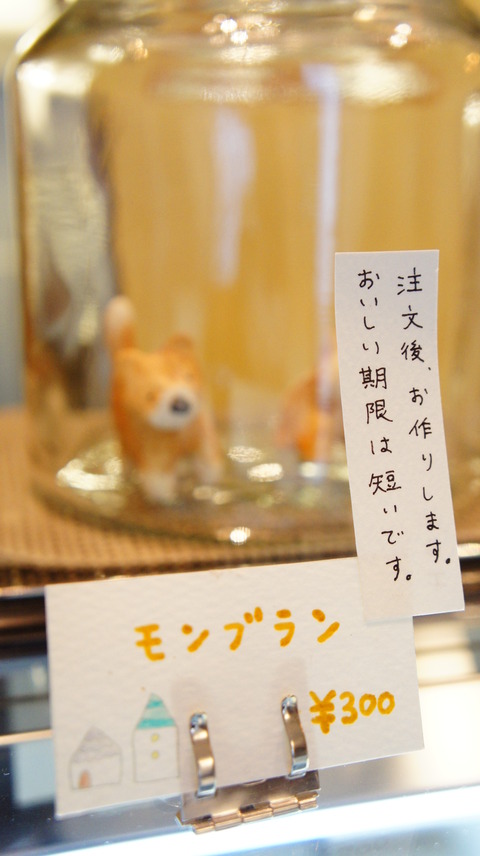 注文後、お作りします。
おいしい期限は短いです。
モンブラン
¥300